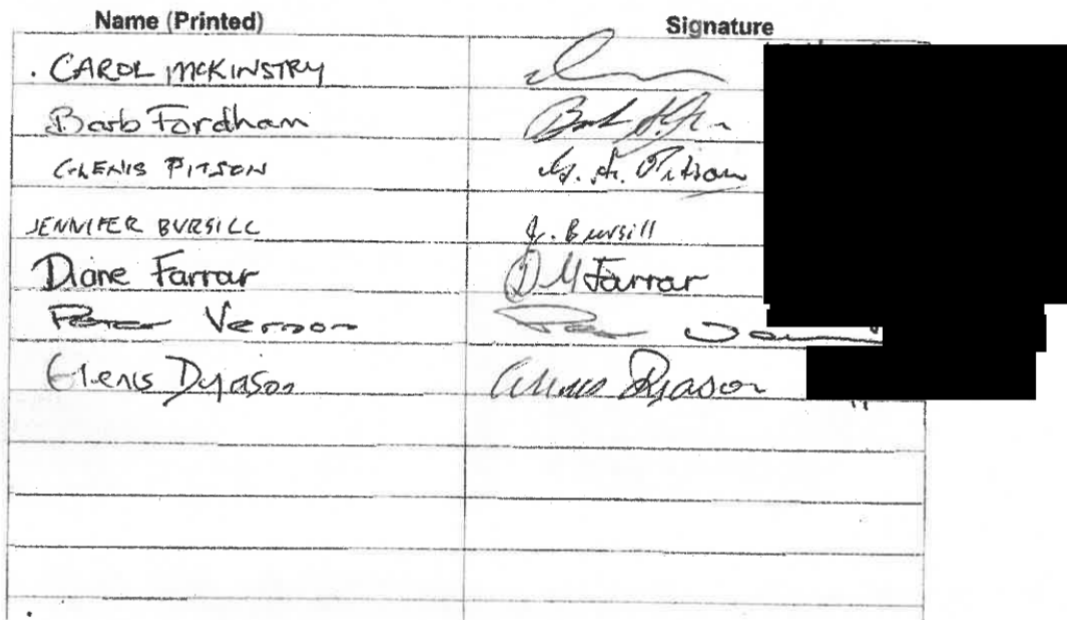 Name (Printed) Signature
. CAROL MCKINSTRY
Barb Fordham
GLENIS PITSON G. A. Pitson
JENNIFER BURSILL J. Bursill
Diane Farrar D M Farrar
Peter Vernon
Glenis Dyason Glenis Dyason